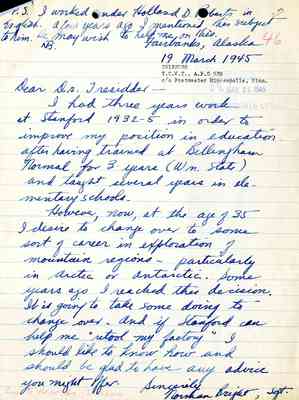 P.S. I worked under Holland D. Roberts in
English. A few years ago I mentioned this subject
to him. He may wish to help me on this.
NB. Fairbanks, Alaska 46
19 March 1945
A.P.O
c/o Postmaster Minneapolis, Minn.
Dear Dr. Tresidder —
I had three years work
at Stanford 1932-5 in order to
improve my position in education
after having trained at Bellingham
Normal for 3 years (Wn. State)
and taught several years in ele-
mentary schools.
However, now, at the age of 35
I desire to change over to some
sort of career in exploration of
mountain regions — particularly
in arctic or antarctic. Some
years ago I reached this decision.
It is going to take some doing to
change over. And if Stanford can
help me "retool my factory" I
should like to know how and
should be glad to have any advice
you might offer.
Sincerely
Norman Bright, Sgt.